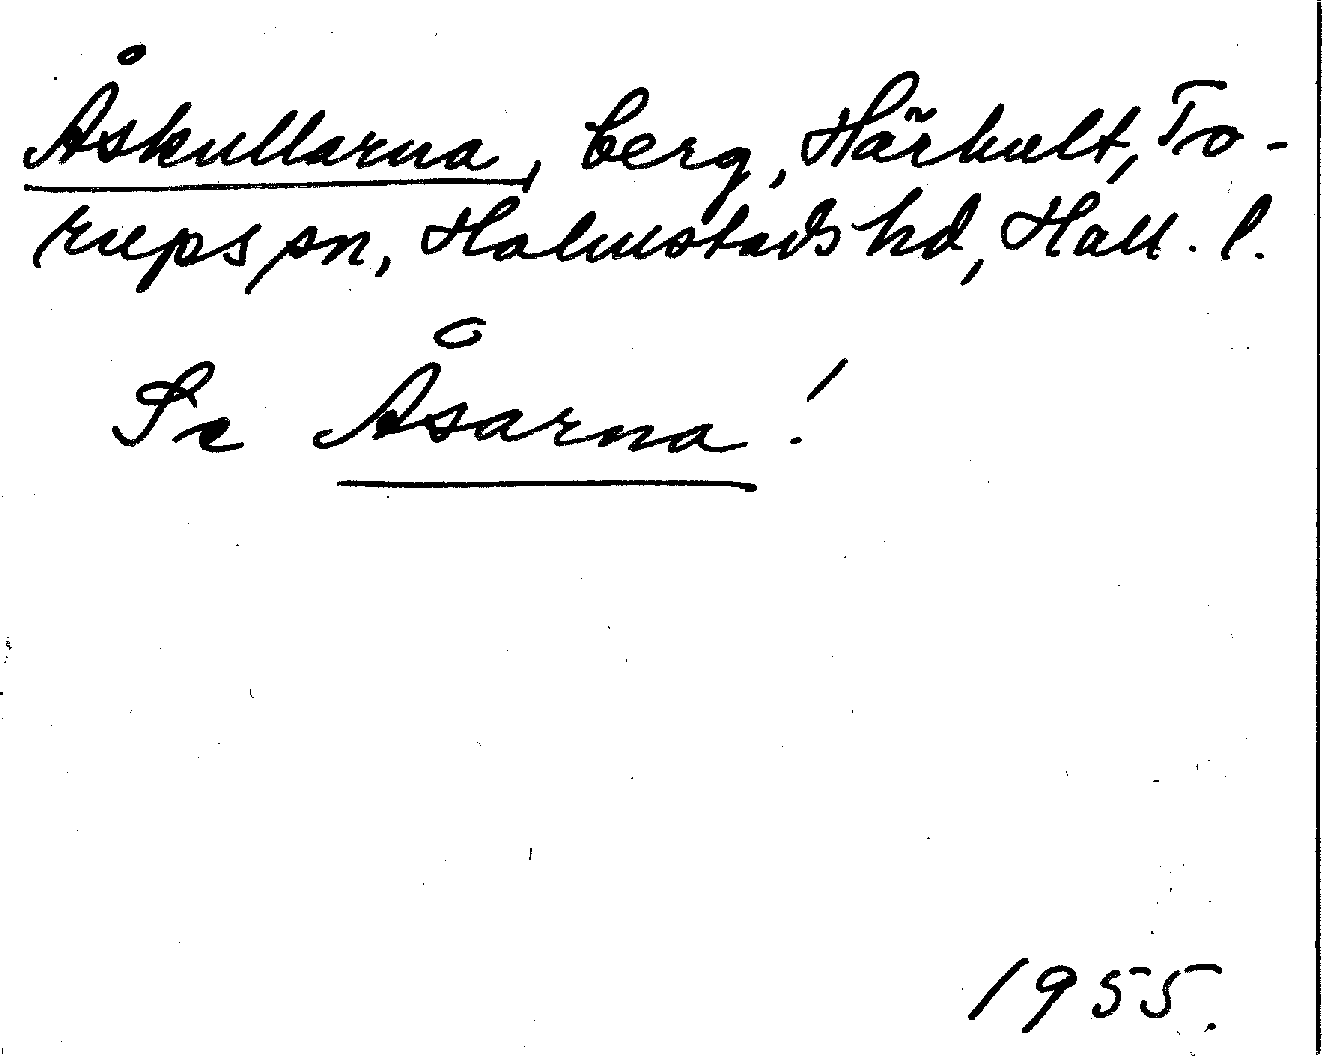 Åskullarna, berg, Härhult, To-
rups sn, Halmstads hd, Hall. l.
Se Åsarna!
1955.